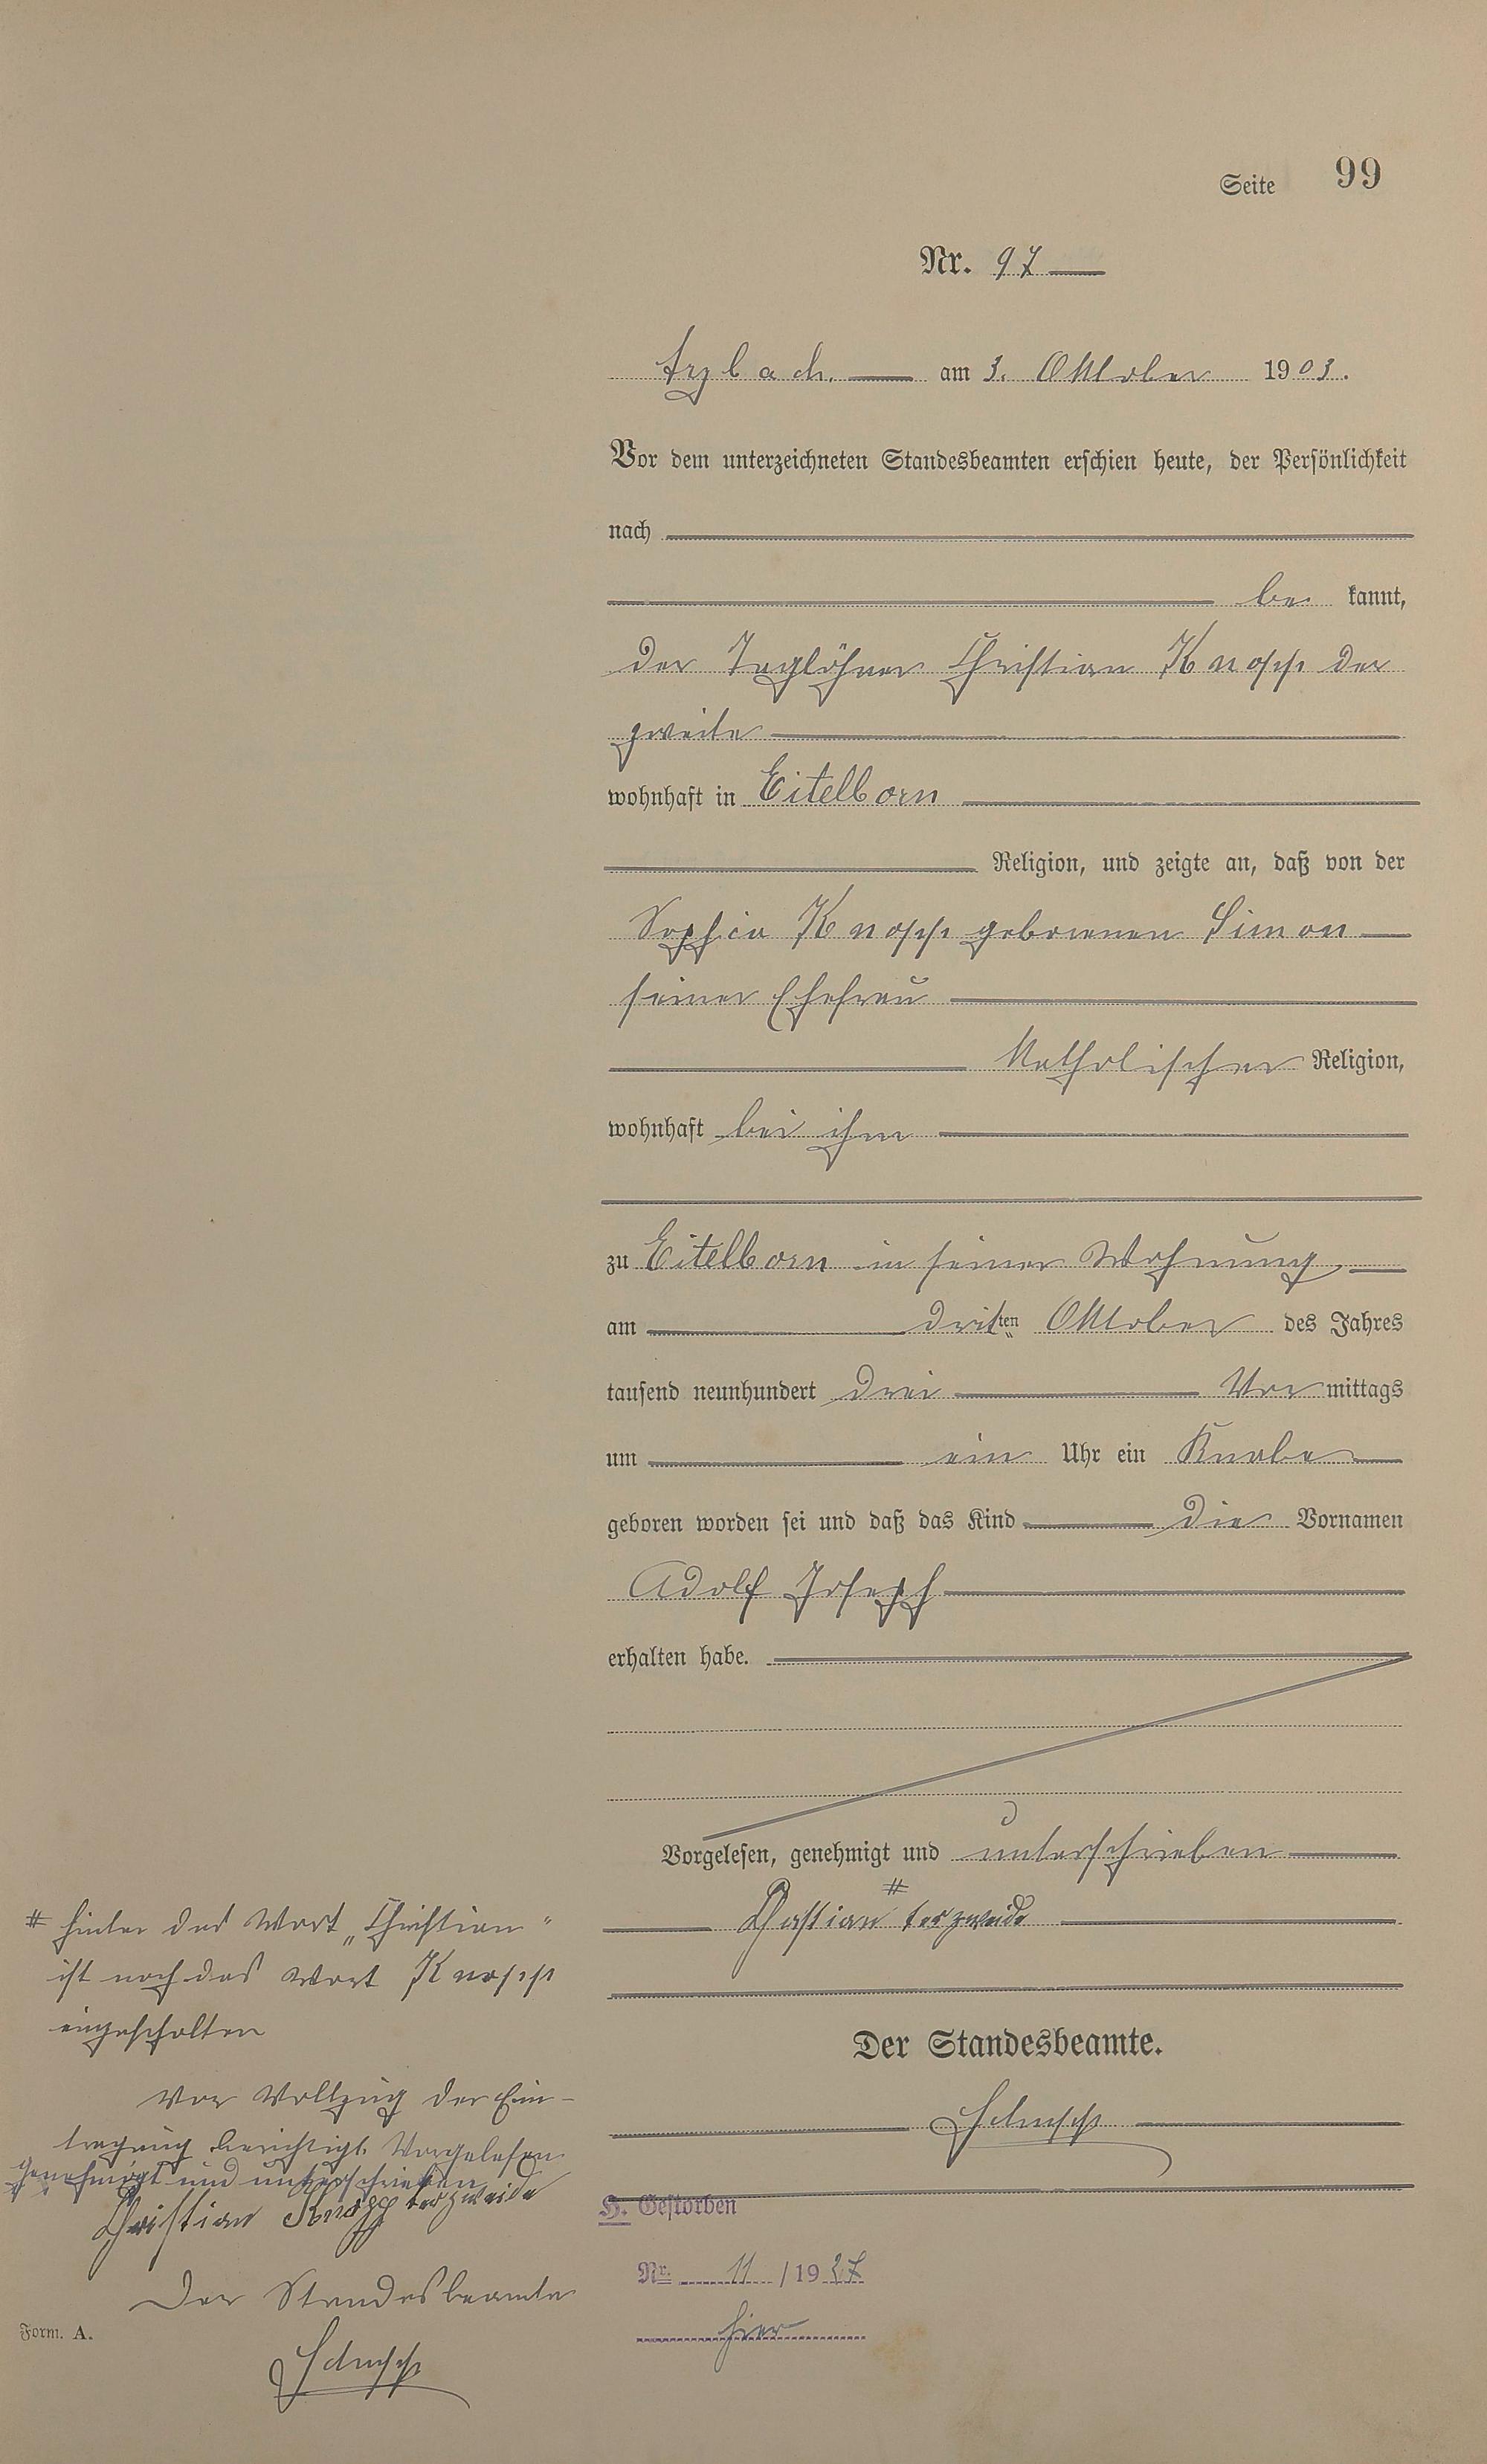 Seite 99
Nr. 97
Arzbach. am 3. Oktober 1903.
Vor dem unterzeichneten Standesbeamten erschien heute, der Persönlichkeit
nach
be kannt,
der Taglöhner Christian Knopp der
zweite
wohnhaft in Eitelborn
Religion, und zeigte an, daß von der
Sophia Knopp geborenen Simon
seiner Ehefrau
katholischer Religion,
wohnhaft bei ihm
zu Eitelborn in seiner Wohnung
am dritten Oktober des Jahres
tausend neunhundert drei Vor mittags
um ein Uhr ein Knabe
geboren worden sei und daß das Kind die Vornamen
Adolf Joseph
erhalten habe.
Vorgelesen, genehmigt und unterschrieben
# Christian der zweide
# hinter das Wort „Christian"
ist noch das Wort Knopp
eingeschalten
Der Standesbeamte.
Vor Vollzug der Ein-
tragung berichtigt. Vorgelesen
genehmigt und unterschrieben
Christian Knopp der zweide
Der Standesbeamte
H. Gestorben
Nr. 11 / 1927
hier
Form. A.